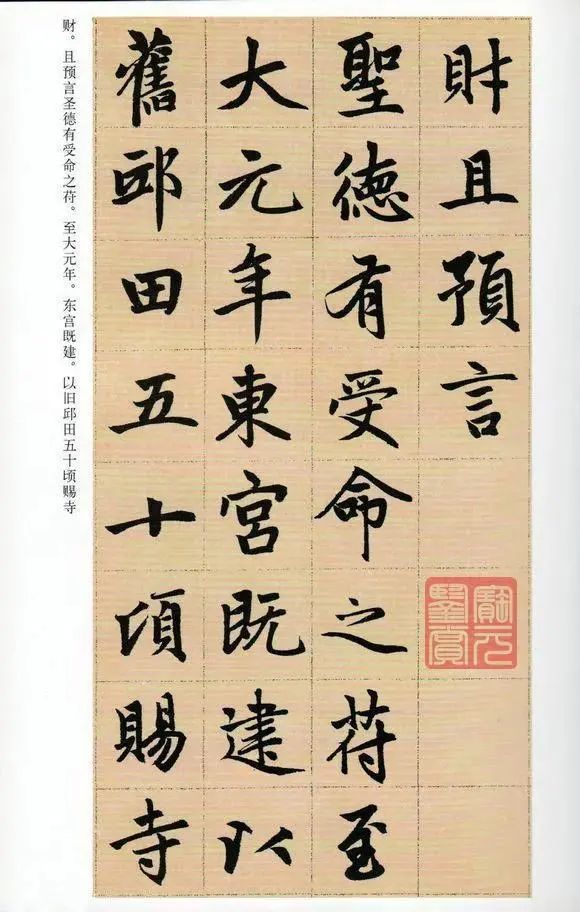 財且預言
聖德有受命之苻至
大元年東宮既建以
舊邱田五十頃賜寺
财。且预言圣德有受命之苻。至大元年。东宫既建。以旧邱田五十顷赐寺
寶元
鑒賞